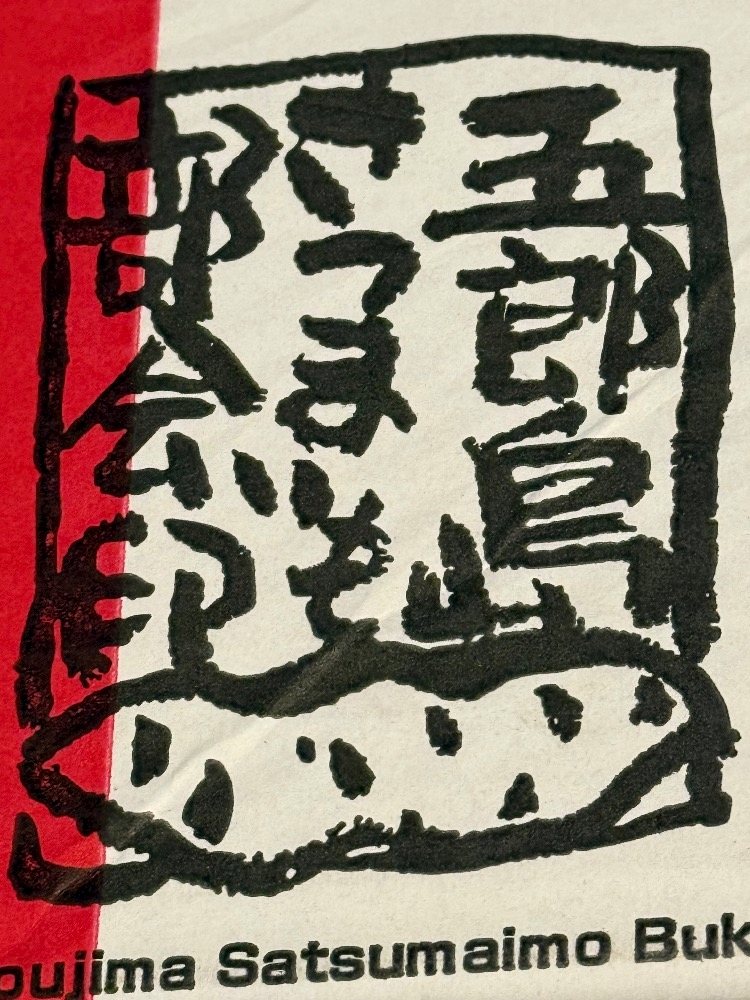 五郎島
さつまいも
部会印
oujima Satsumaimo Buk